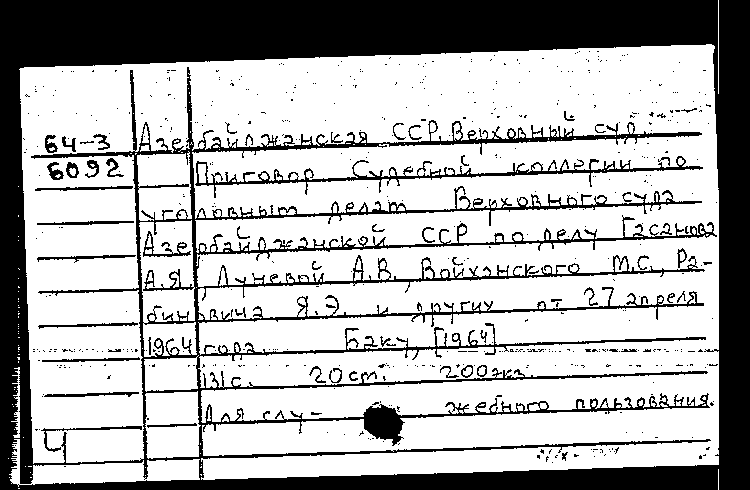 64-3 Азербайджанская ССР. Верховный суд.
6092 Приговор Судебной коллегии по
уголовным делам Верховного суда
Азербайджанской ССР по делу Гасанова
А.Я., Луневой А.В., Войханского М.С., Ра-
биновича Я.Э. и других от 27 апреля
1964 года. Баку, [1964]
131с. 20см. 200экз.
Для слу- жебного пользования.
Ч